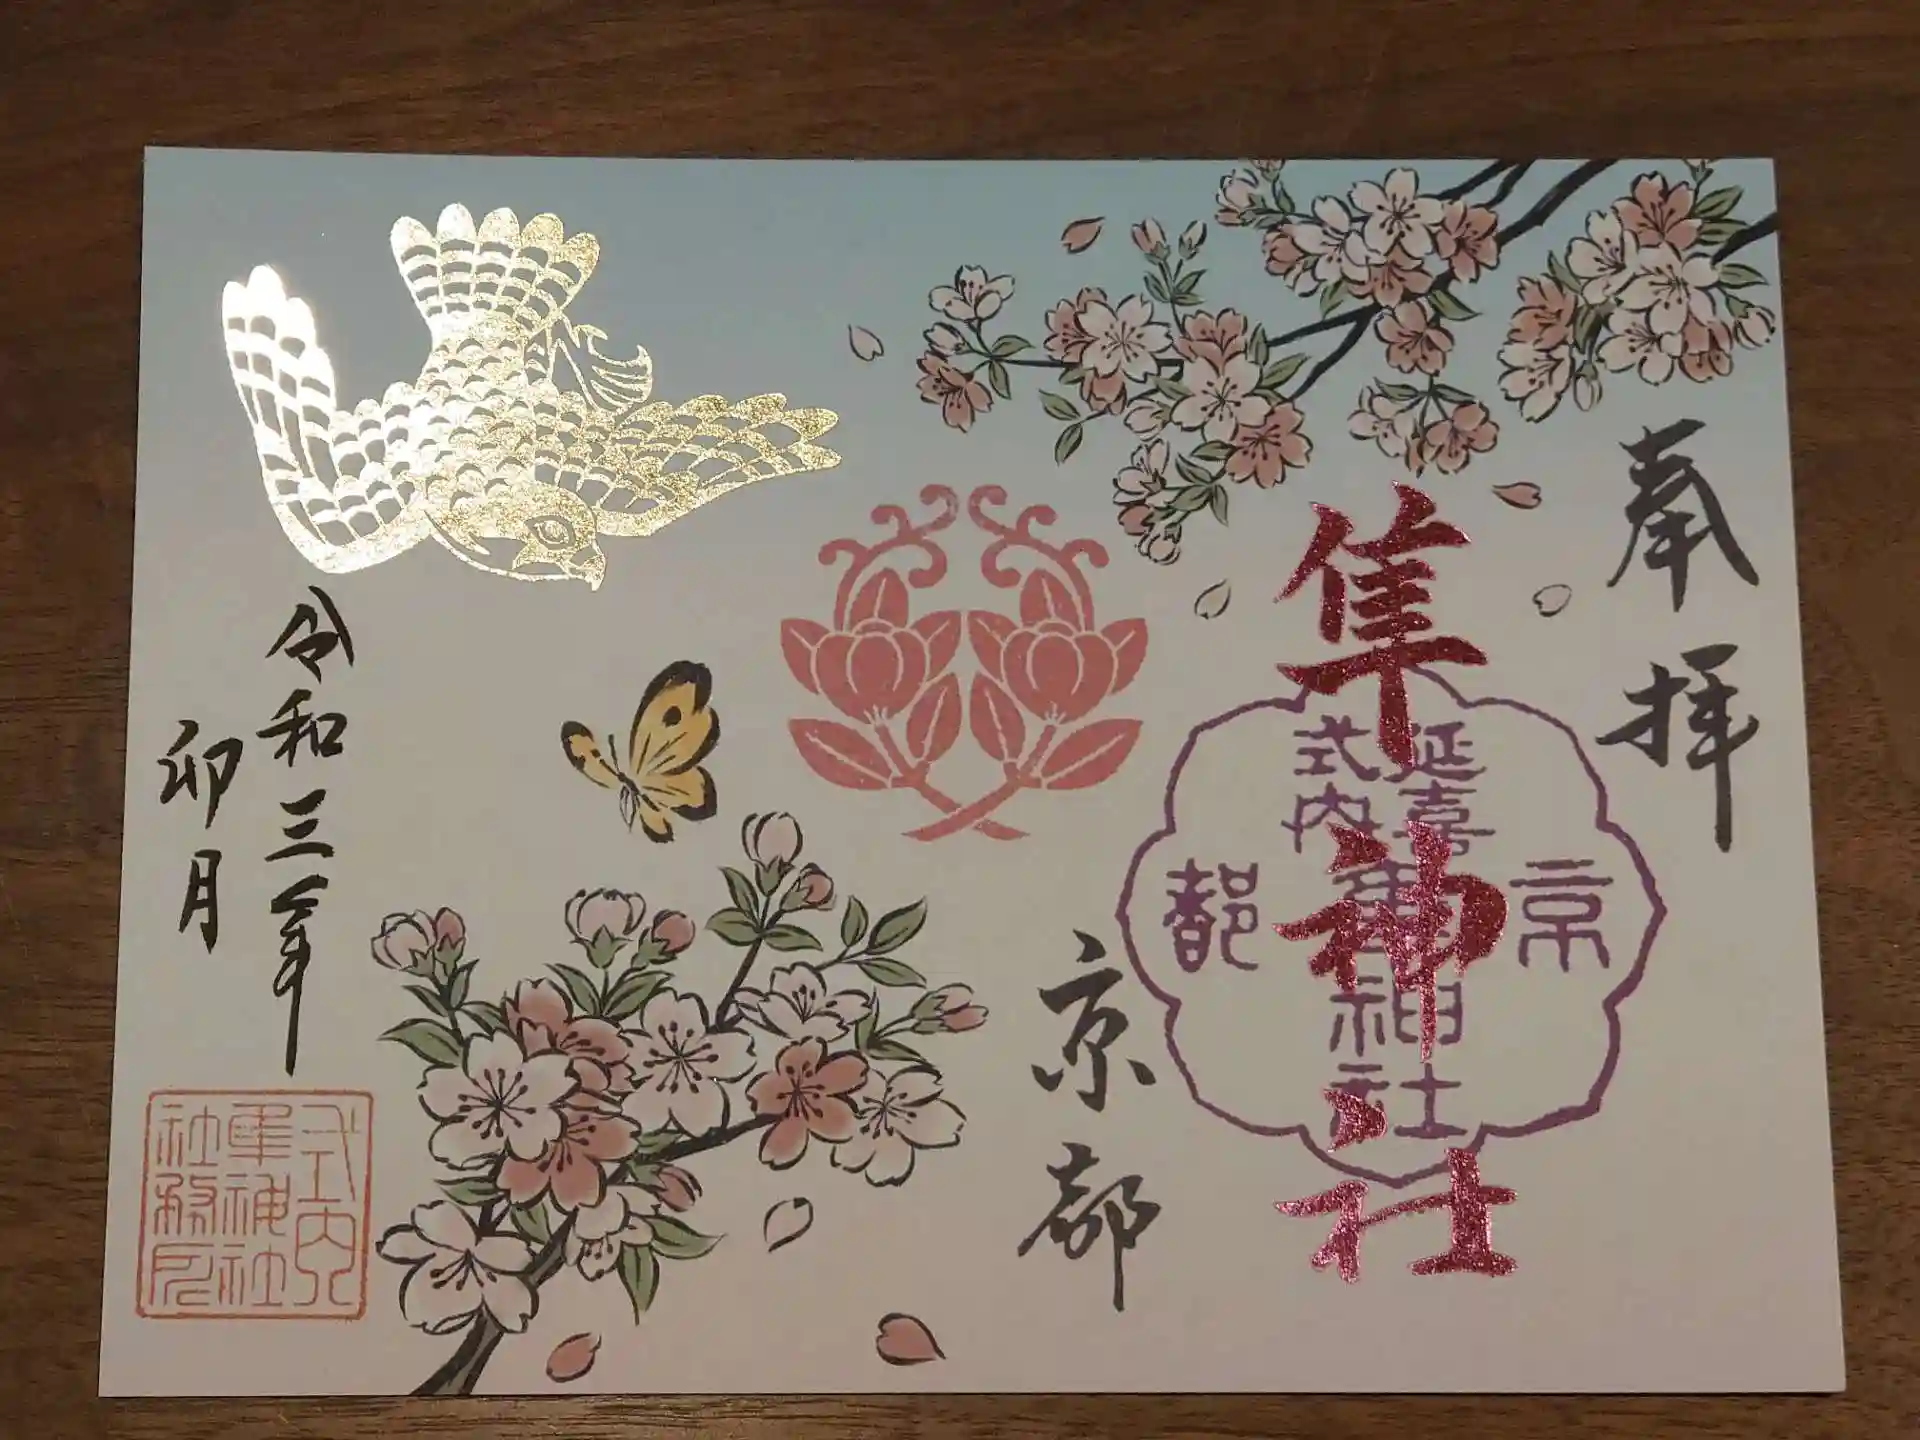 奉拝
隼神社
延喜
式内
隼神社
京
都
京都
令和三年
卯月
式内
隼神社
社務所